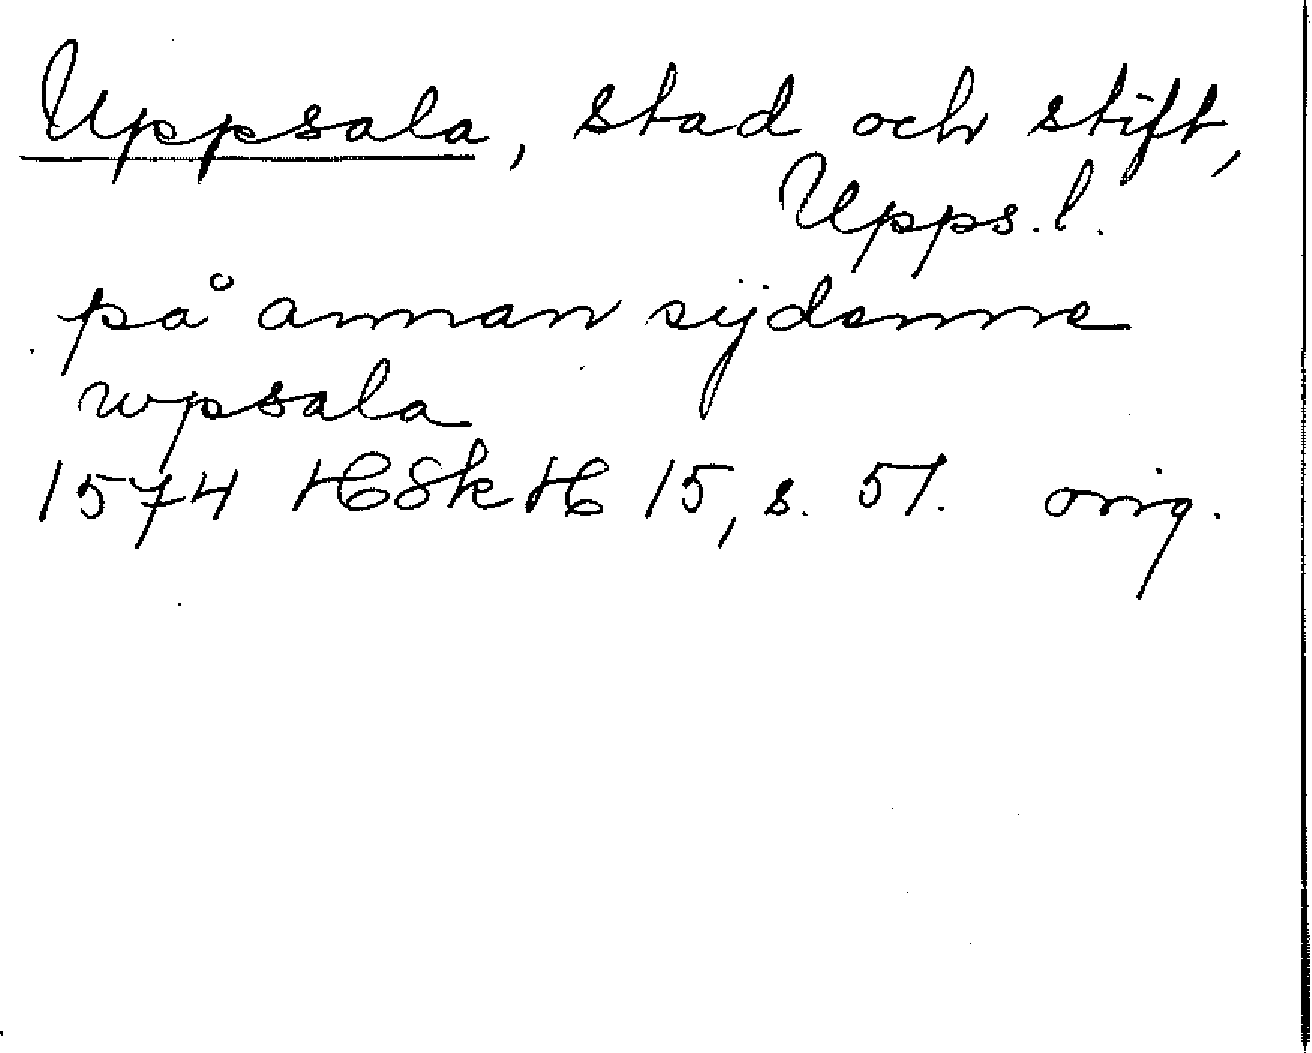 Uppsala, stad och stift,
Upps. l.
på annan sijdenne
wpsala
1574 HSkH 15, s. 51. orig.